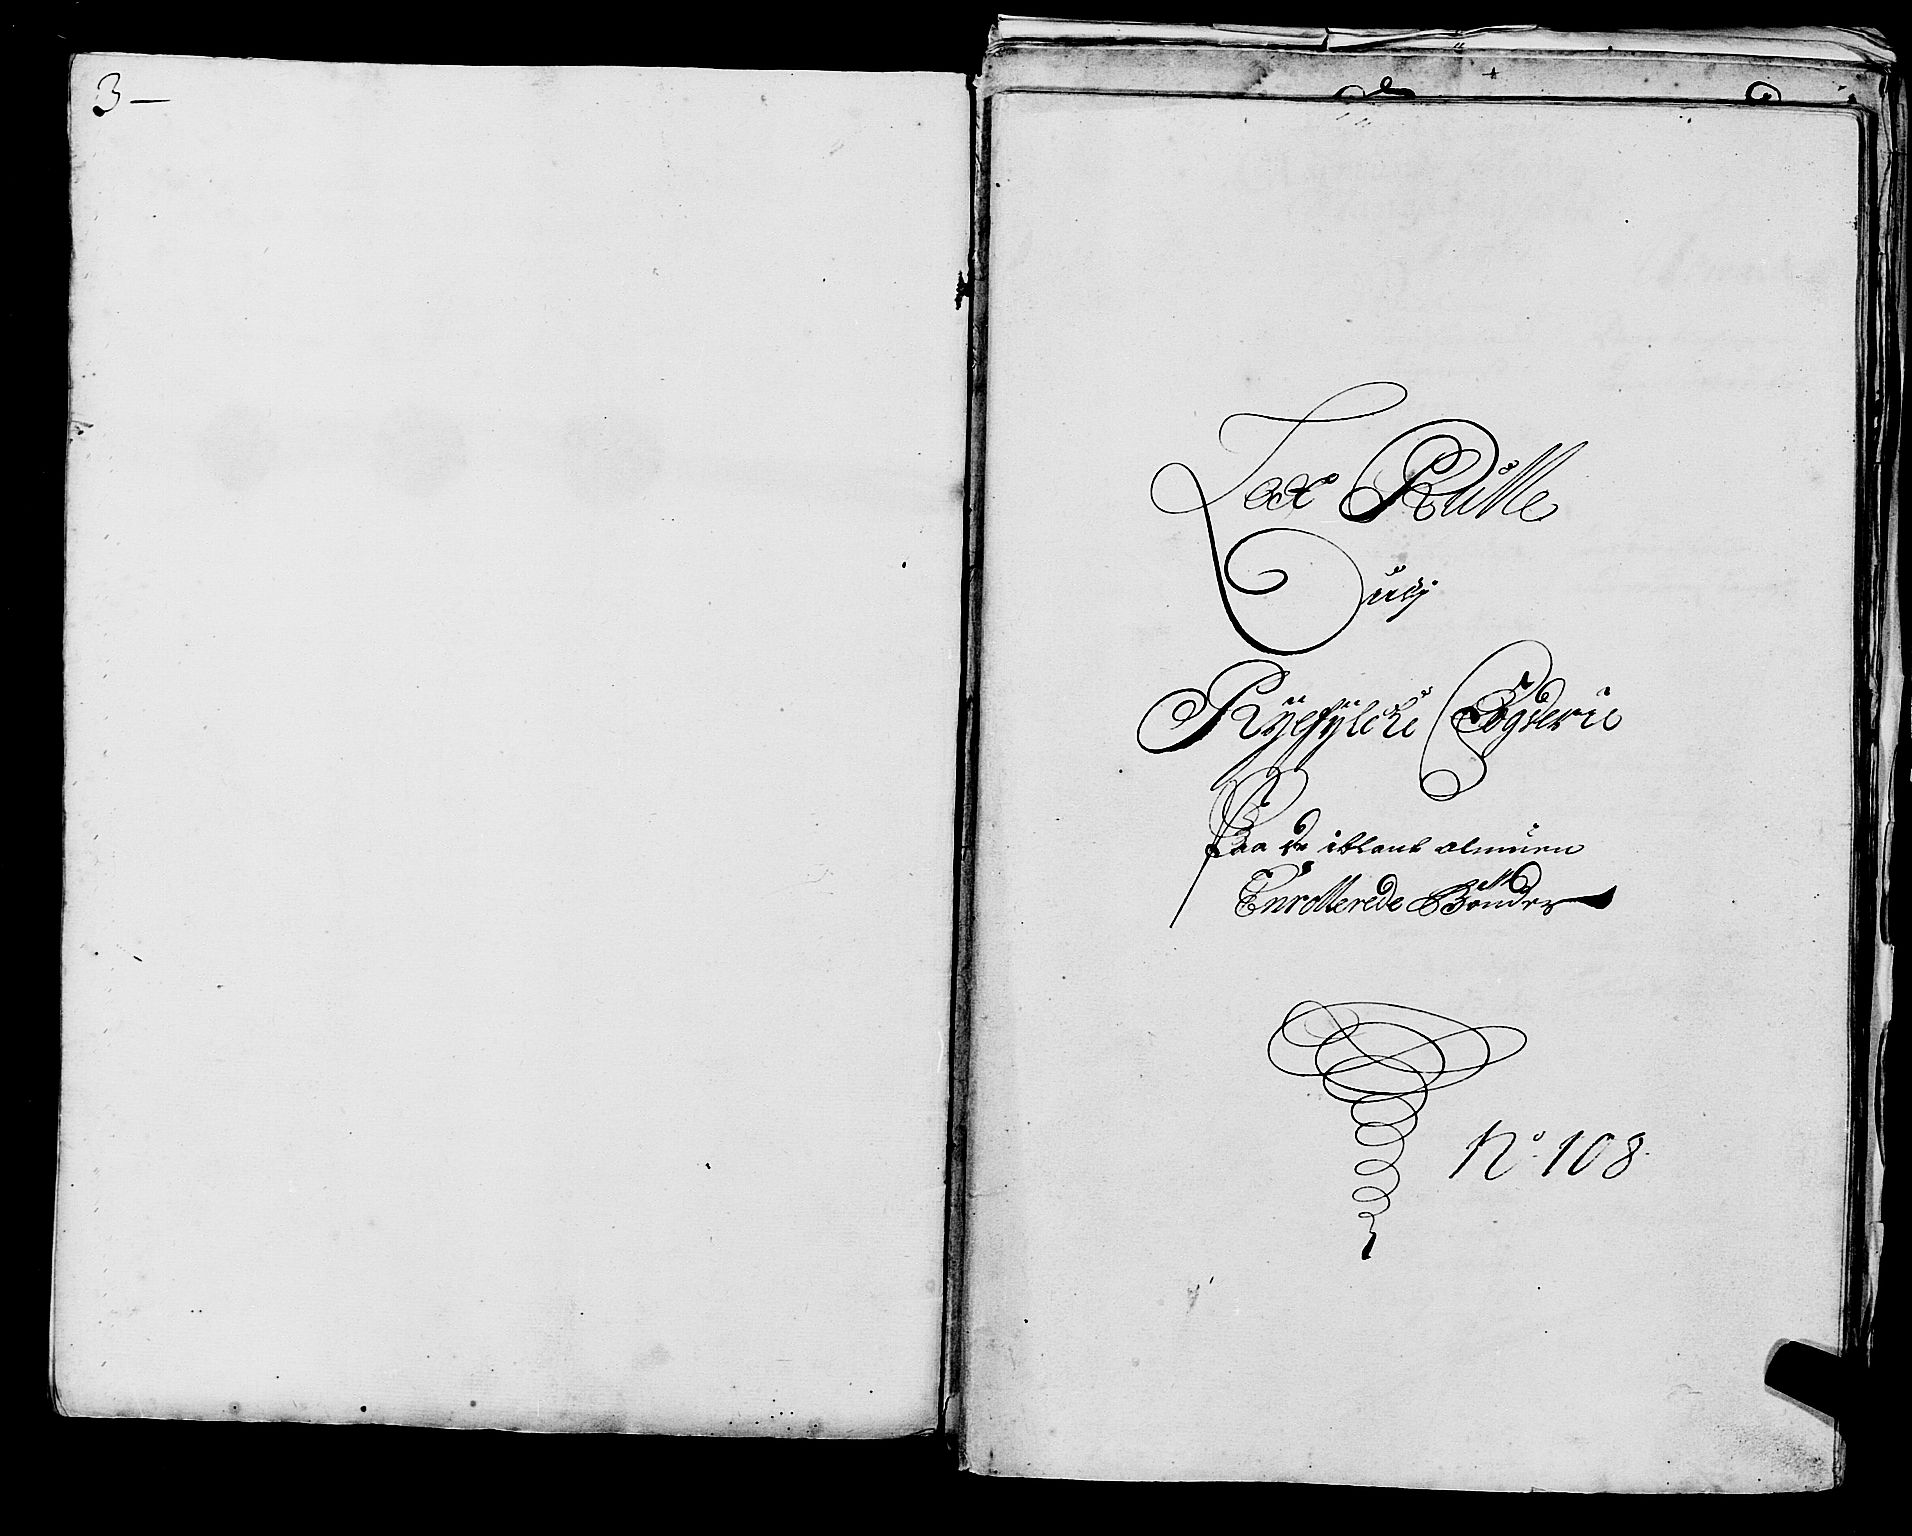 3 –
Lax Rulle
udj
Ryefylcke Fogderie
Paa de iblant almuen
Enrollerede Bønder
No 108